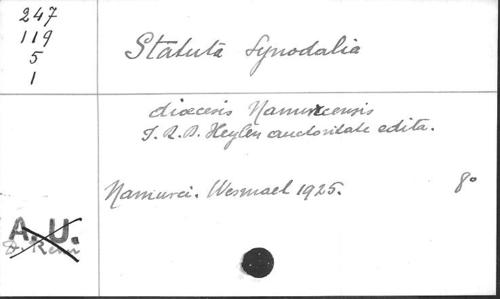 247
119
5
1
Statuta Synodalia
diœcesis Namurcensis
I. R. D. Heylen auctoritate edita.
Namurci. Wesmael 1925. 8°
A. U.